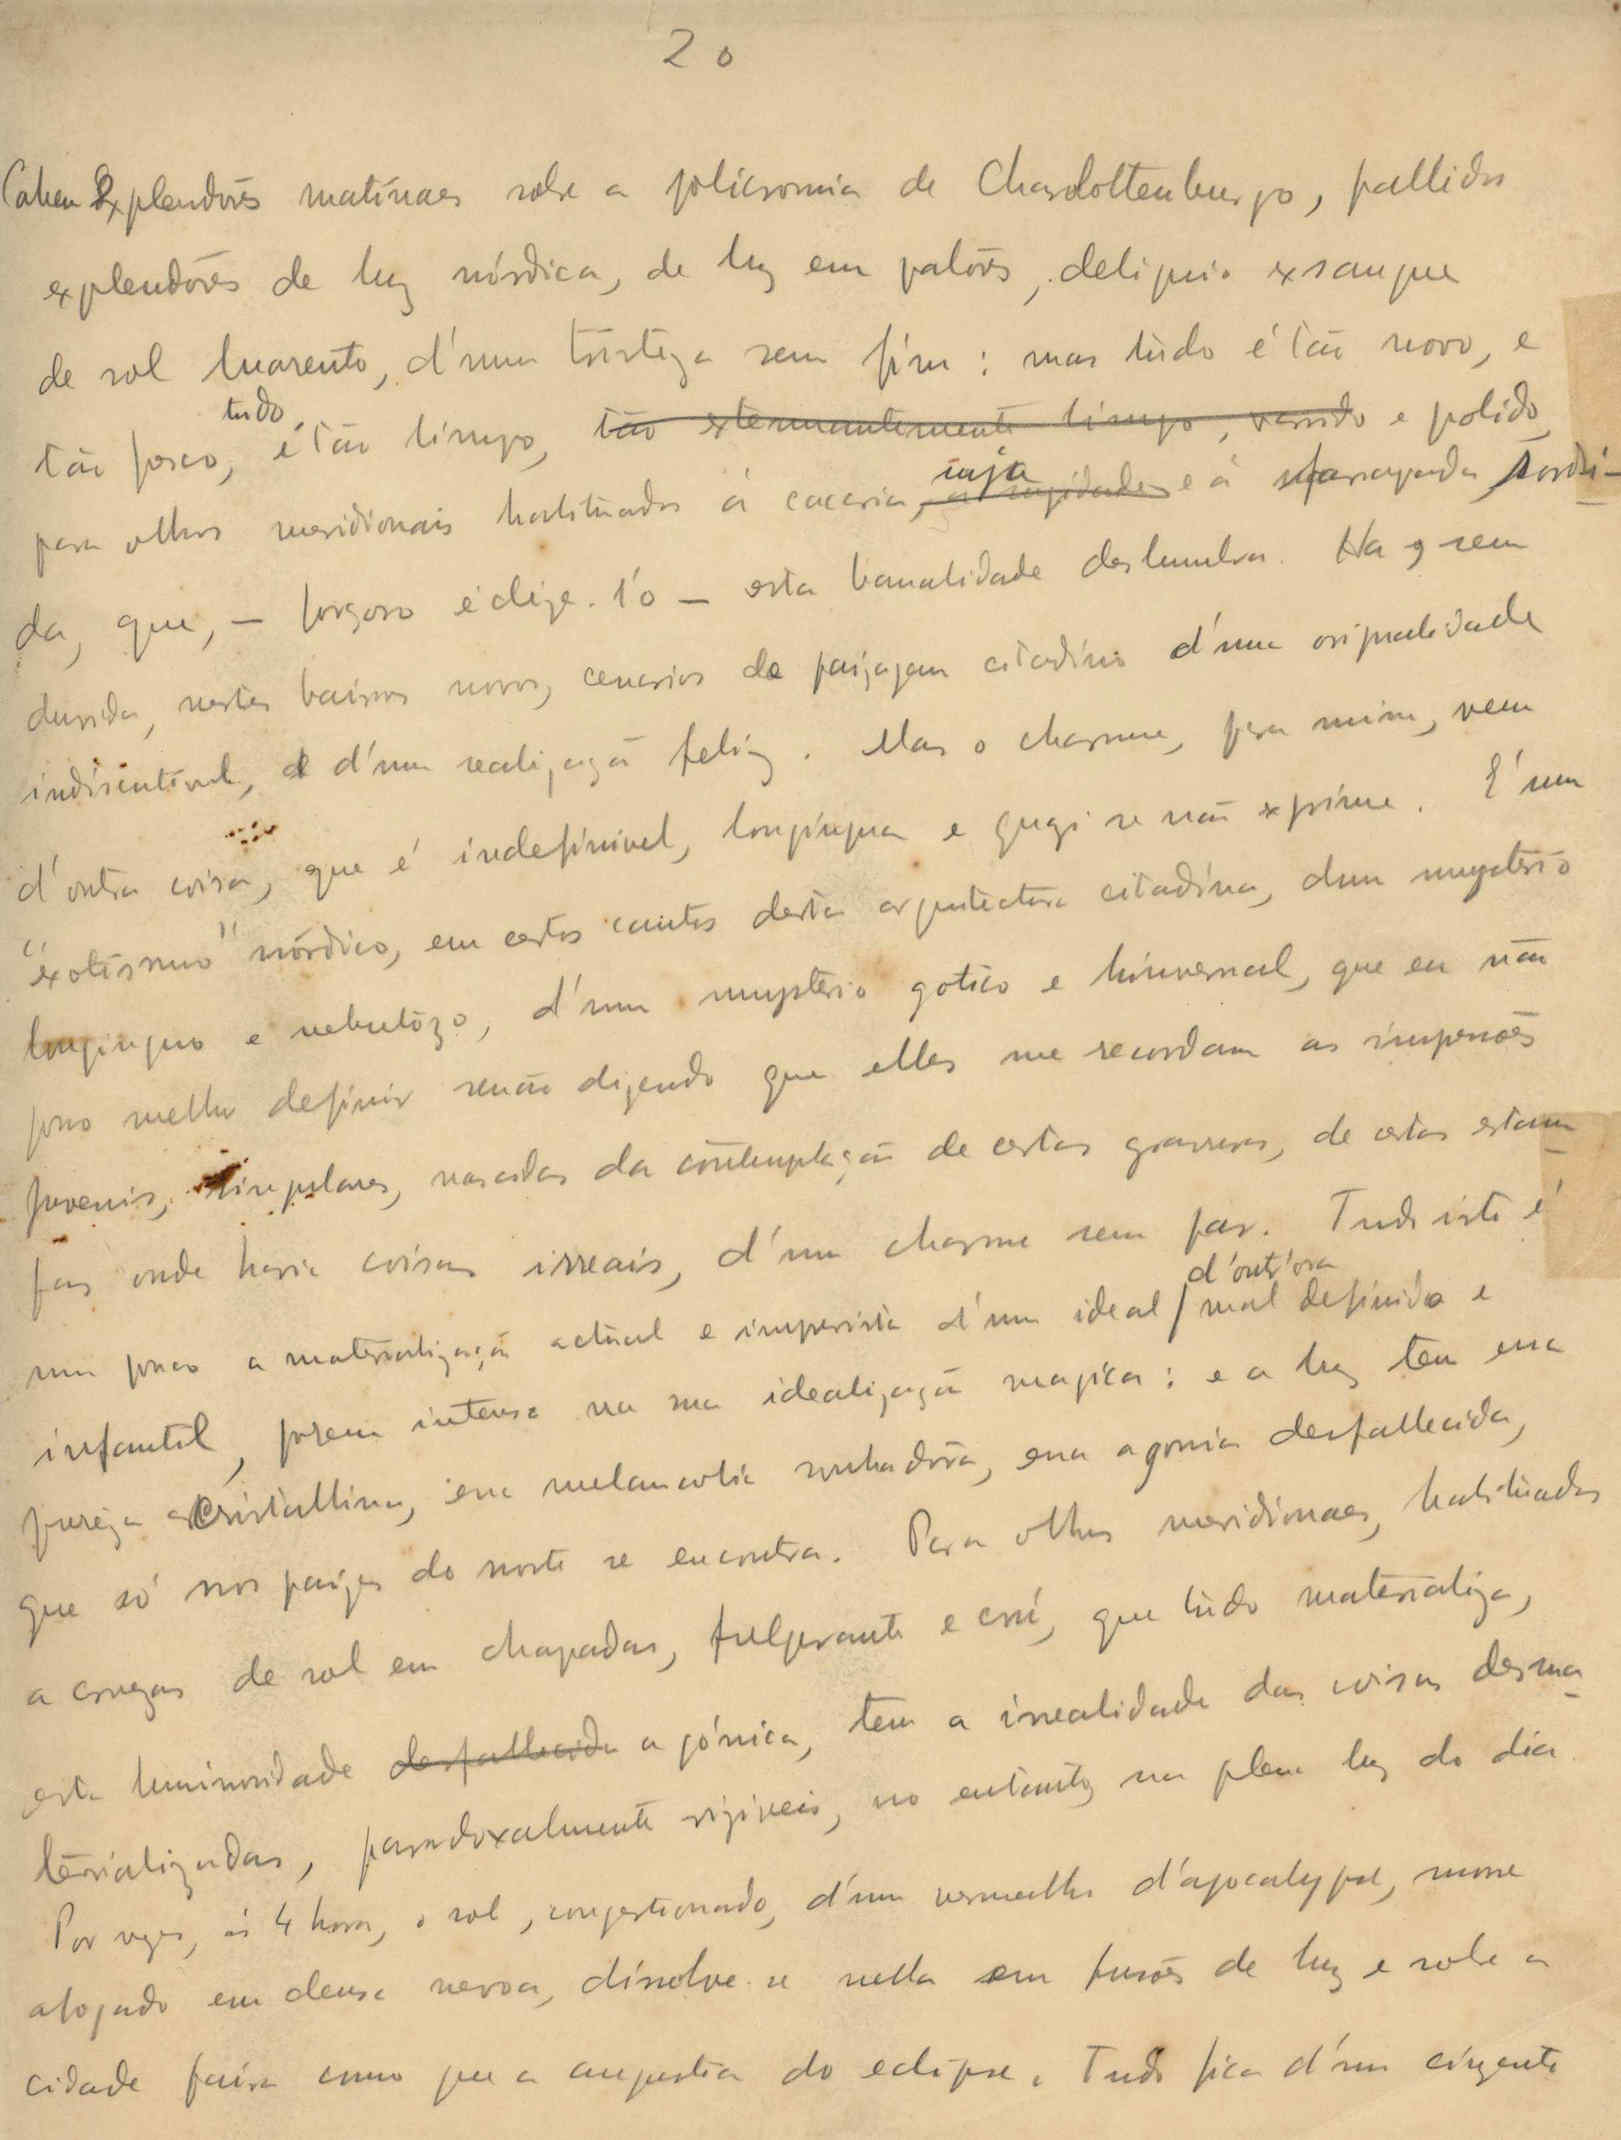 20
Cahem Explendôres matinaes sobre a policromia de Charlottenburgo, pallidos
explendôres de luz nórdica, de luz em palôres, deliquio exsangue
de sol luarento, d'uma tristeza sem fim: mas tudo é tão novo, e
tudo
tão fosco, é tão limpo, tão extermantemente limpo, varrido e polido,
suja
para olhos meridionais habituados á cacaria, a rapidade e á esfarrapada sordi-
da, que, — forçoso é dize-l'o — esta banalidade deslumbra. Ha, sem
duvida, nestes bairros novos, cenarios de paizagem citadina d'uma originalidade
indiscutivel, e d'uma realização feliz. Mas o charme, para mim, vem
d'outra coisa, que é indefinivel, longinqua e quazi se não exprime. É um
"éxotismo" nórdico, em certos cantos desta arquitectura citadina, dum mysterio
longinquo e nebulôzo, d'um mysterio gotico e hinvernal, que eu não
posso melhor definir senão dizendo que elles me recordam as impresões
juvenis, singulares, nascidas da contemplação de certas gravuras, de certas estam-
pas onde havia coisas irreais, d'um charme sem par. Tudo isto é
d'outr'ora
um pouco a materialização actual e imprevista d'um ideal / mal definido e
infantil, porem intenso na sua idealização magica: e a luz tem essa
pureza cristallina, essa melancolia sonhadôra, essa agonia desfallecida,
que só nos paizes do norte se encontra. Para olhos meridionaes, habituados
a cruezas de sol em chapadas, fulgurante e crú, que tudo materializa,
esta luminosidade desfallecida agónica, tem a irrealidade das coisas desma-
terializadas, paradoxalmente vizíveis, no entanto, na plena luz do dia.
Por vezes, ás 4 horas, o sol, congestionado, d'um vermelho d'apocalypse, morre
afogado em densa nevoa, dissolve-se nella em fusões de luz e sobre a
cidade paira como que a angustia do eclipse. Tudo fica d'um cinzento